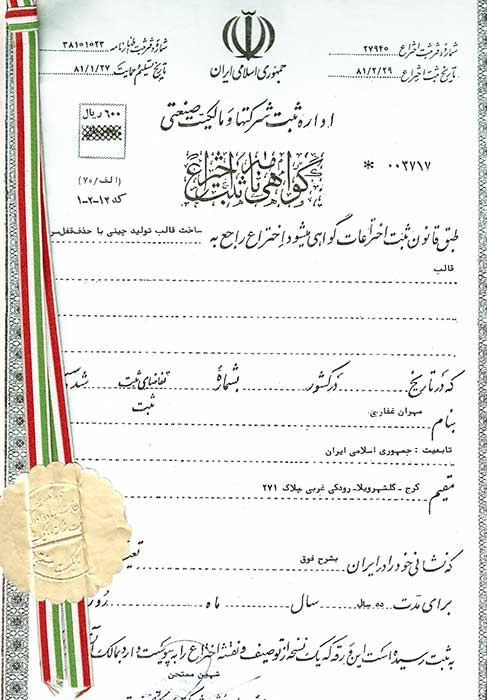 شماره و تاریخ ثبت اظهارنامه ۳۸۱۰۱۰۲۳
تاریخ تسلیم حمایت ۸۱/۱/۲۷
جمهوری اسلامی ایران
شماره ثبت اختراع ۲۷۹۴۰
تاریخ ثبت اختراع ۸۱/۲/۲۹
اداره ثبت شرکتها و مالکیت صنعتی
۶۰۰ ریال
گواهی نامه ثبت اختراع
* ۰۰۳۷۱۷
(الف/۷۰)
کد ۱۲-۲-۱
طبق قانون ثبت اختراعات گواهی میشود اختراع راجع به ساخت قالب تولید چینی با حذف قفل
قالب
که در تاریخ در کشور بشماره تقاضای ثبت شده
ثبت
بنام مهران غفاری
تابعیت : جمهوری اسلامی ایران
مقیم کرج - گلشهرویلا - رودکی غربی پلاک ۲۷۱
که نشانی خود را در ایران بشرح فوق
برای مدت ده سال سال ماه روز
به ثبت رسیده است این ورقه که یک نسخه از توصیف و نقشه اختراع را به پیوست دارد بمالک